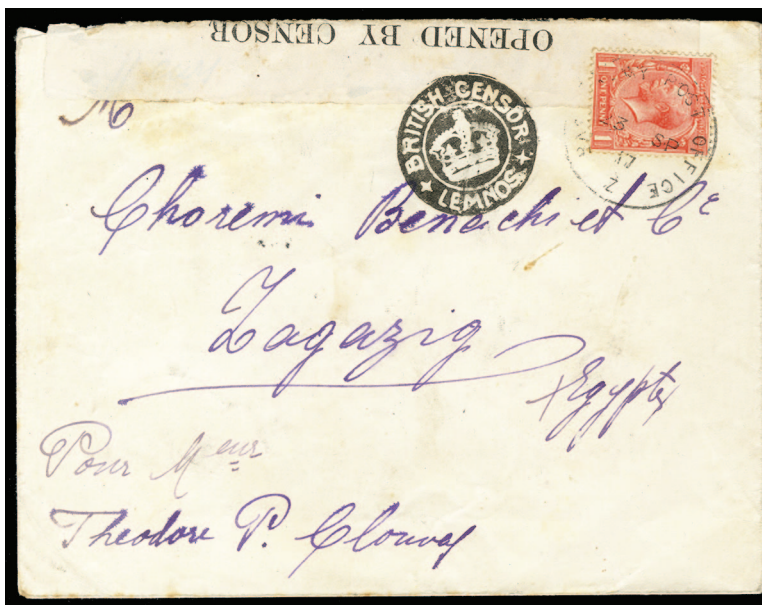 OPENED BY CENSOR
BRITISH CENSOR
LEMNOS
ONE PENNY
POST OFFICE
M
Choremi Benachi et Cᵉ
Zagazig
Egypte
Pour Mᵉᵘʳ
Theodore P.